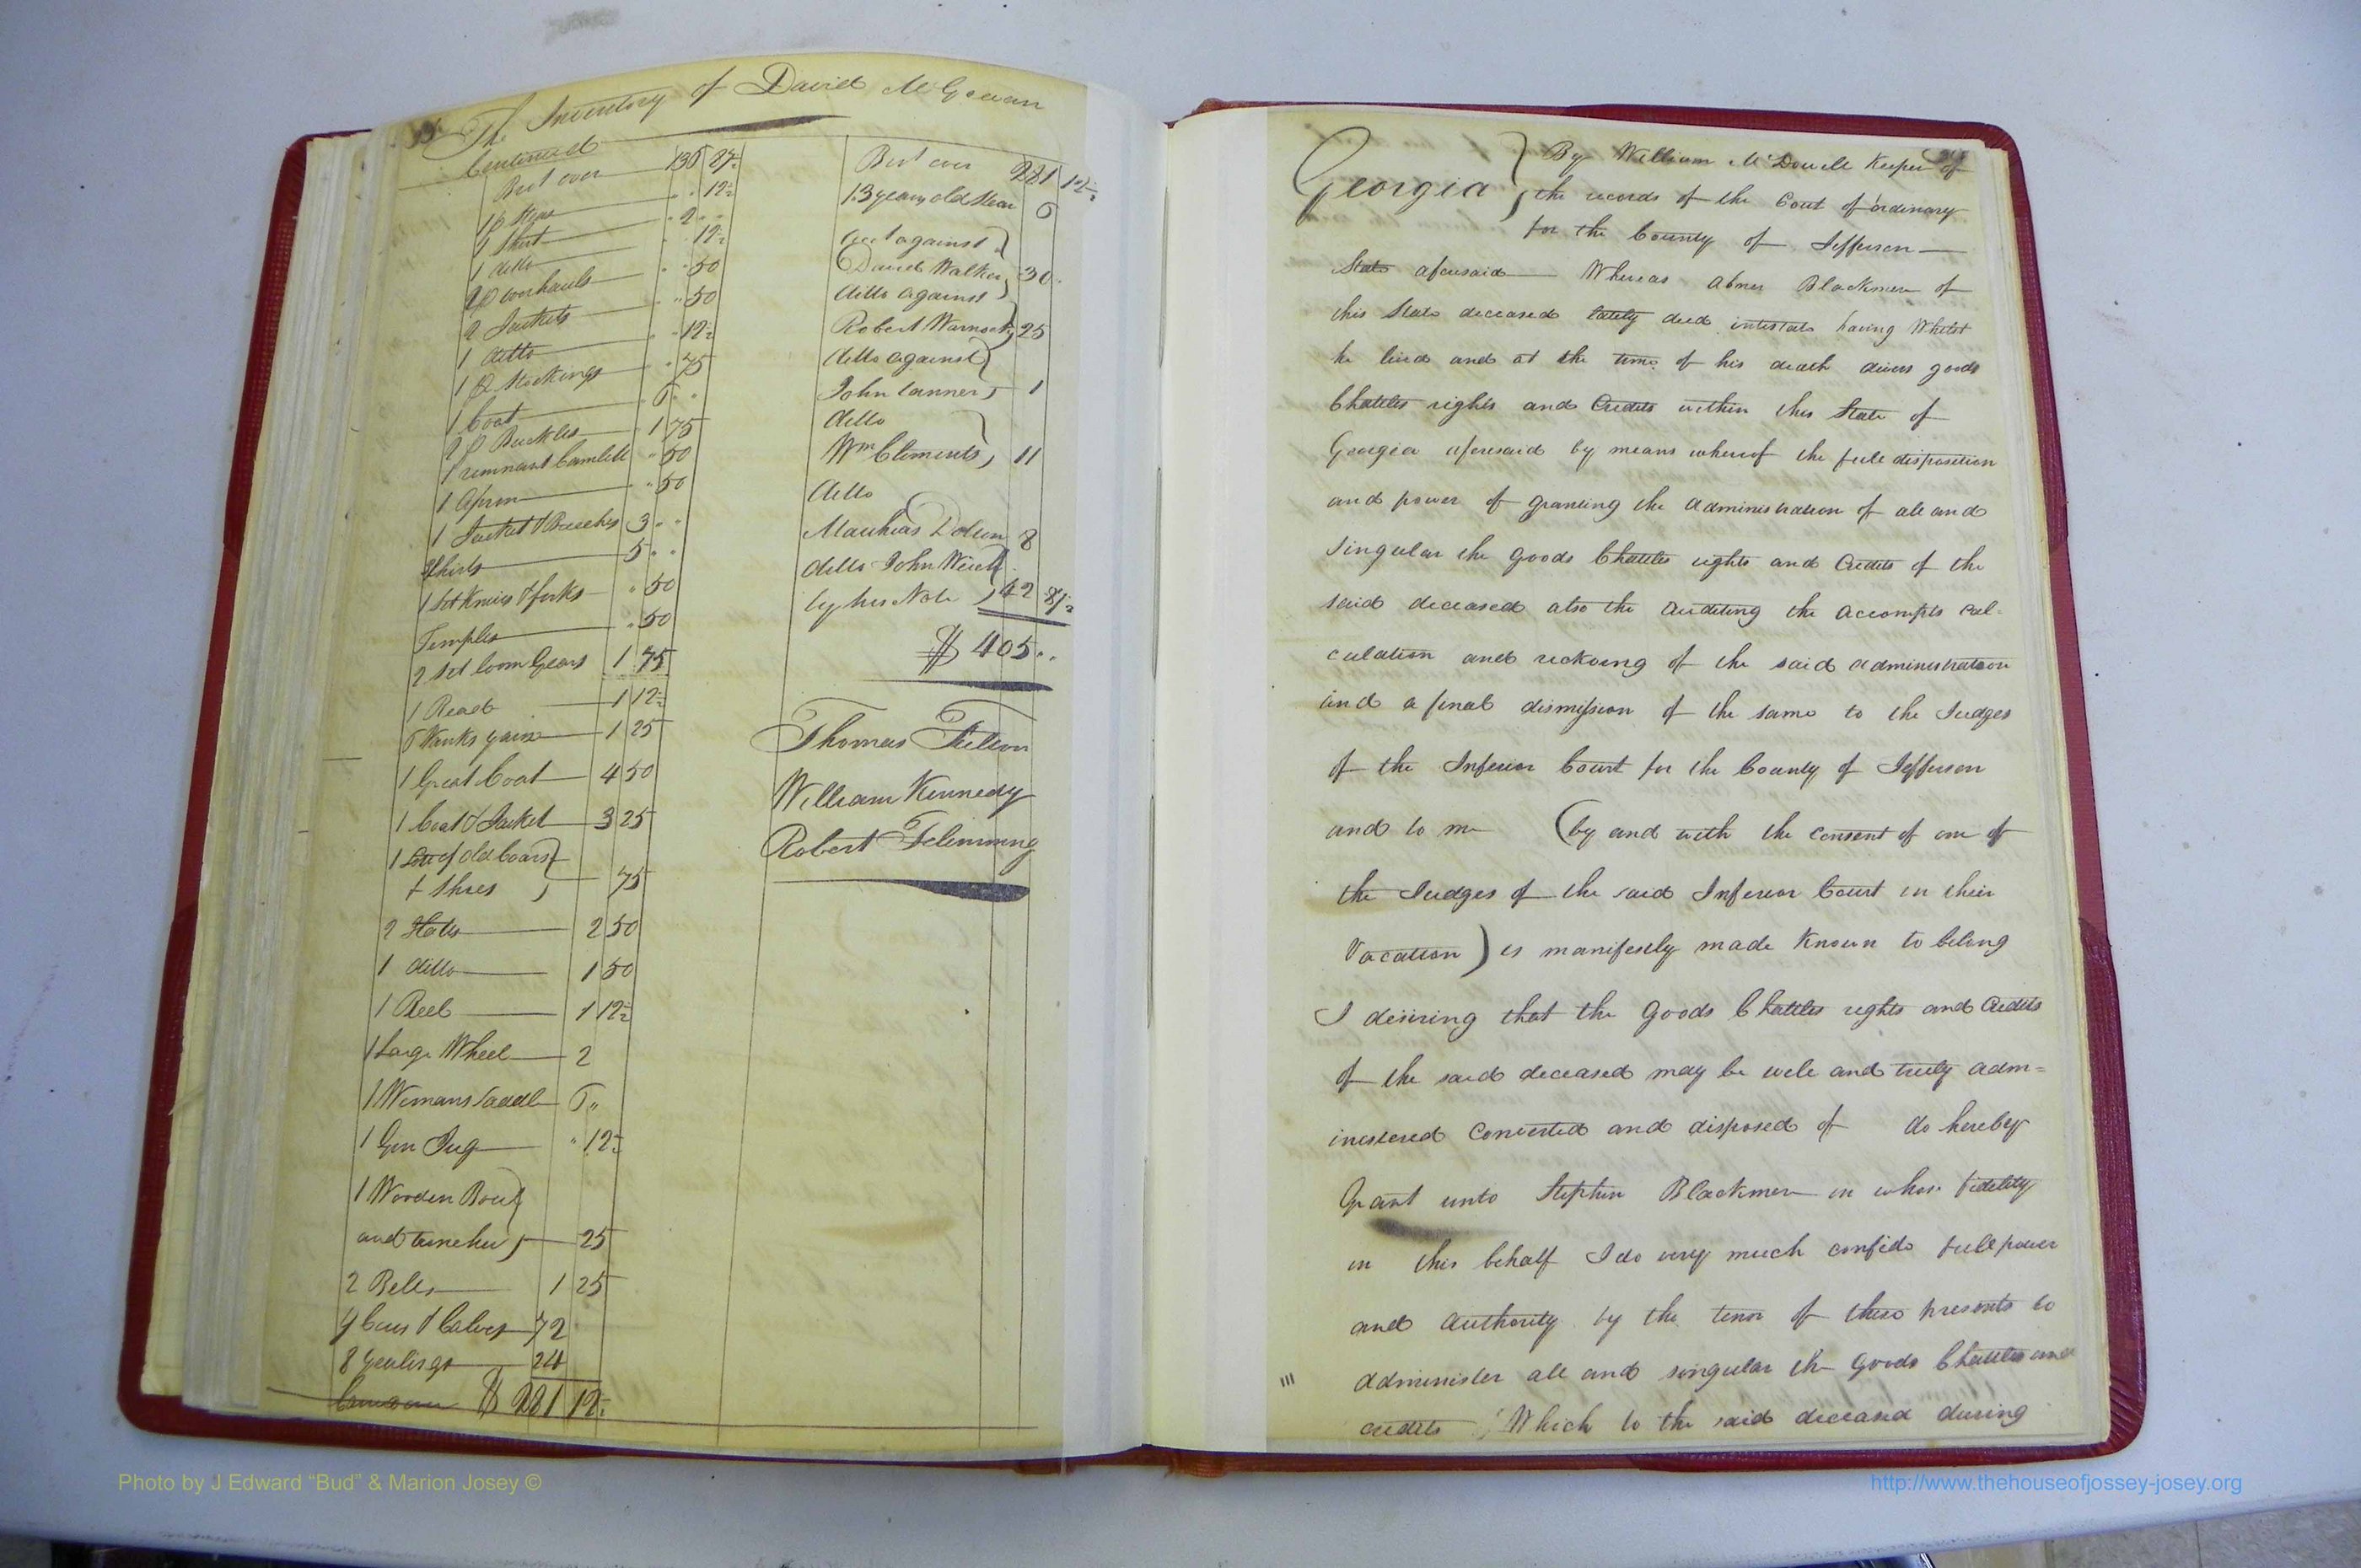 The Inventory of David McGowan
Continued
Brot over 135 87½
" 12½
1 Shirt " 2 " "
1 ditto " 12½
overhauls " 50
2 Jackets " 50
1 ditto " 12½
1 p Stockings " 75
1 Coat 5 " "
2 p Buckles 1 75
1 remnant Camblett " 50
1 Apron " 50
1 Jacket & Breeches 3 " "
Shirts 5 " "
1 Set Knives & forks " 50
Temples " 50
2 Set loom Gears 1 75
1 Read 1 12½
5 Hanks yarn 1 25
1 Great Coat 4 50
1 Coat & Jacket 3 25
1 Lot of old
& Shoes 75
2 Hatts 2 50
1 ditto 1 50
1 Reel 1 12½
1 Large Wheel 2
1 Womans Saddle 5 "
1 Gin Jug " 12½
1 Wooden Bowl
and 25
2 Bells 1 25
9 Cows & Calves 72
8 yearlings 24
$ 281 12½
Brot over 281 12½
1 3 years old Stear 6
Acct against
David Walker 30
ditto against
Robert Warnock 25
ditto against
John Tanner 1
ditto
Wm Clements 11
ditto
Matthias 8
ditto John
by his Note 42 87½
$ 405 "
Thomas Fulton
William Kennedy
Robert Flemming
Georgia } By William McDowell Keeper of
the records of the Court of ordinary
for the County of Jefferson
State aforesaid Whereas Abner Blackmon of
this State deceased lately died intestate having Whilst
he lived and at the time of his death divers goods
Chattles rights and Credits within this State of
Georgia aforesaid by means whereof the full disposition
and power of granting the Administration of all and
Singular the Goods Chattles rights and Credits of the
said deceased also the auditing the accompts cal=
culation and reckoing of the said administration
and a final dismission of the same to the Judges
of the Inferior Court for the County of Jefferson
and to me (by and with the consent of one of
the Judges of the said Inferior Court in their
Vacation) is manifestly made Known to belong
I desiring that the Goods Chattles rights and Credits
of the said deceased may be well and truly adm=
inistered Converted and disposed of do hereby
Grant unto Stephen Blackmon in whose fidelity
in this behalf I do very much confide full power
and authority by the tenor of these presents to
Administer all and singular the Goods Chattles and
credits Which to the said deceased during
Photo by J Edward “Bud” & Marion Josey ©
http://www.thehouseofjossey-josey.org